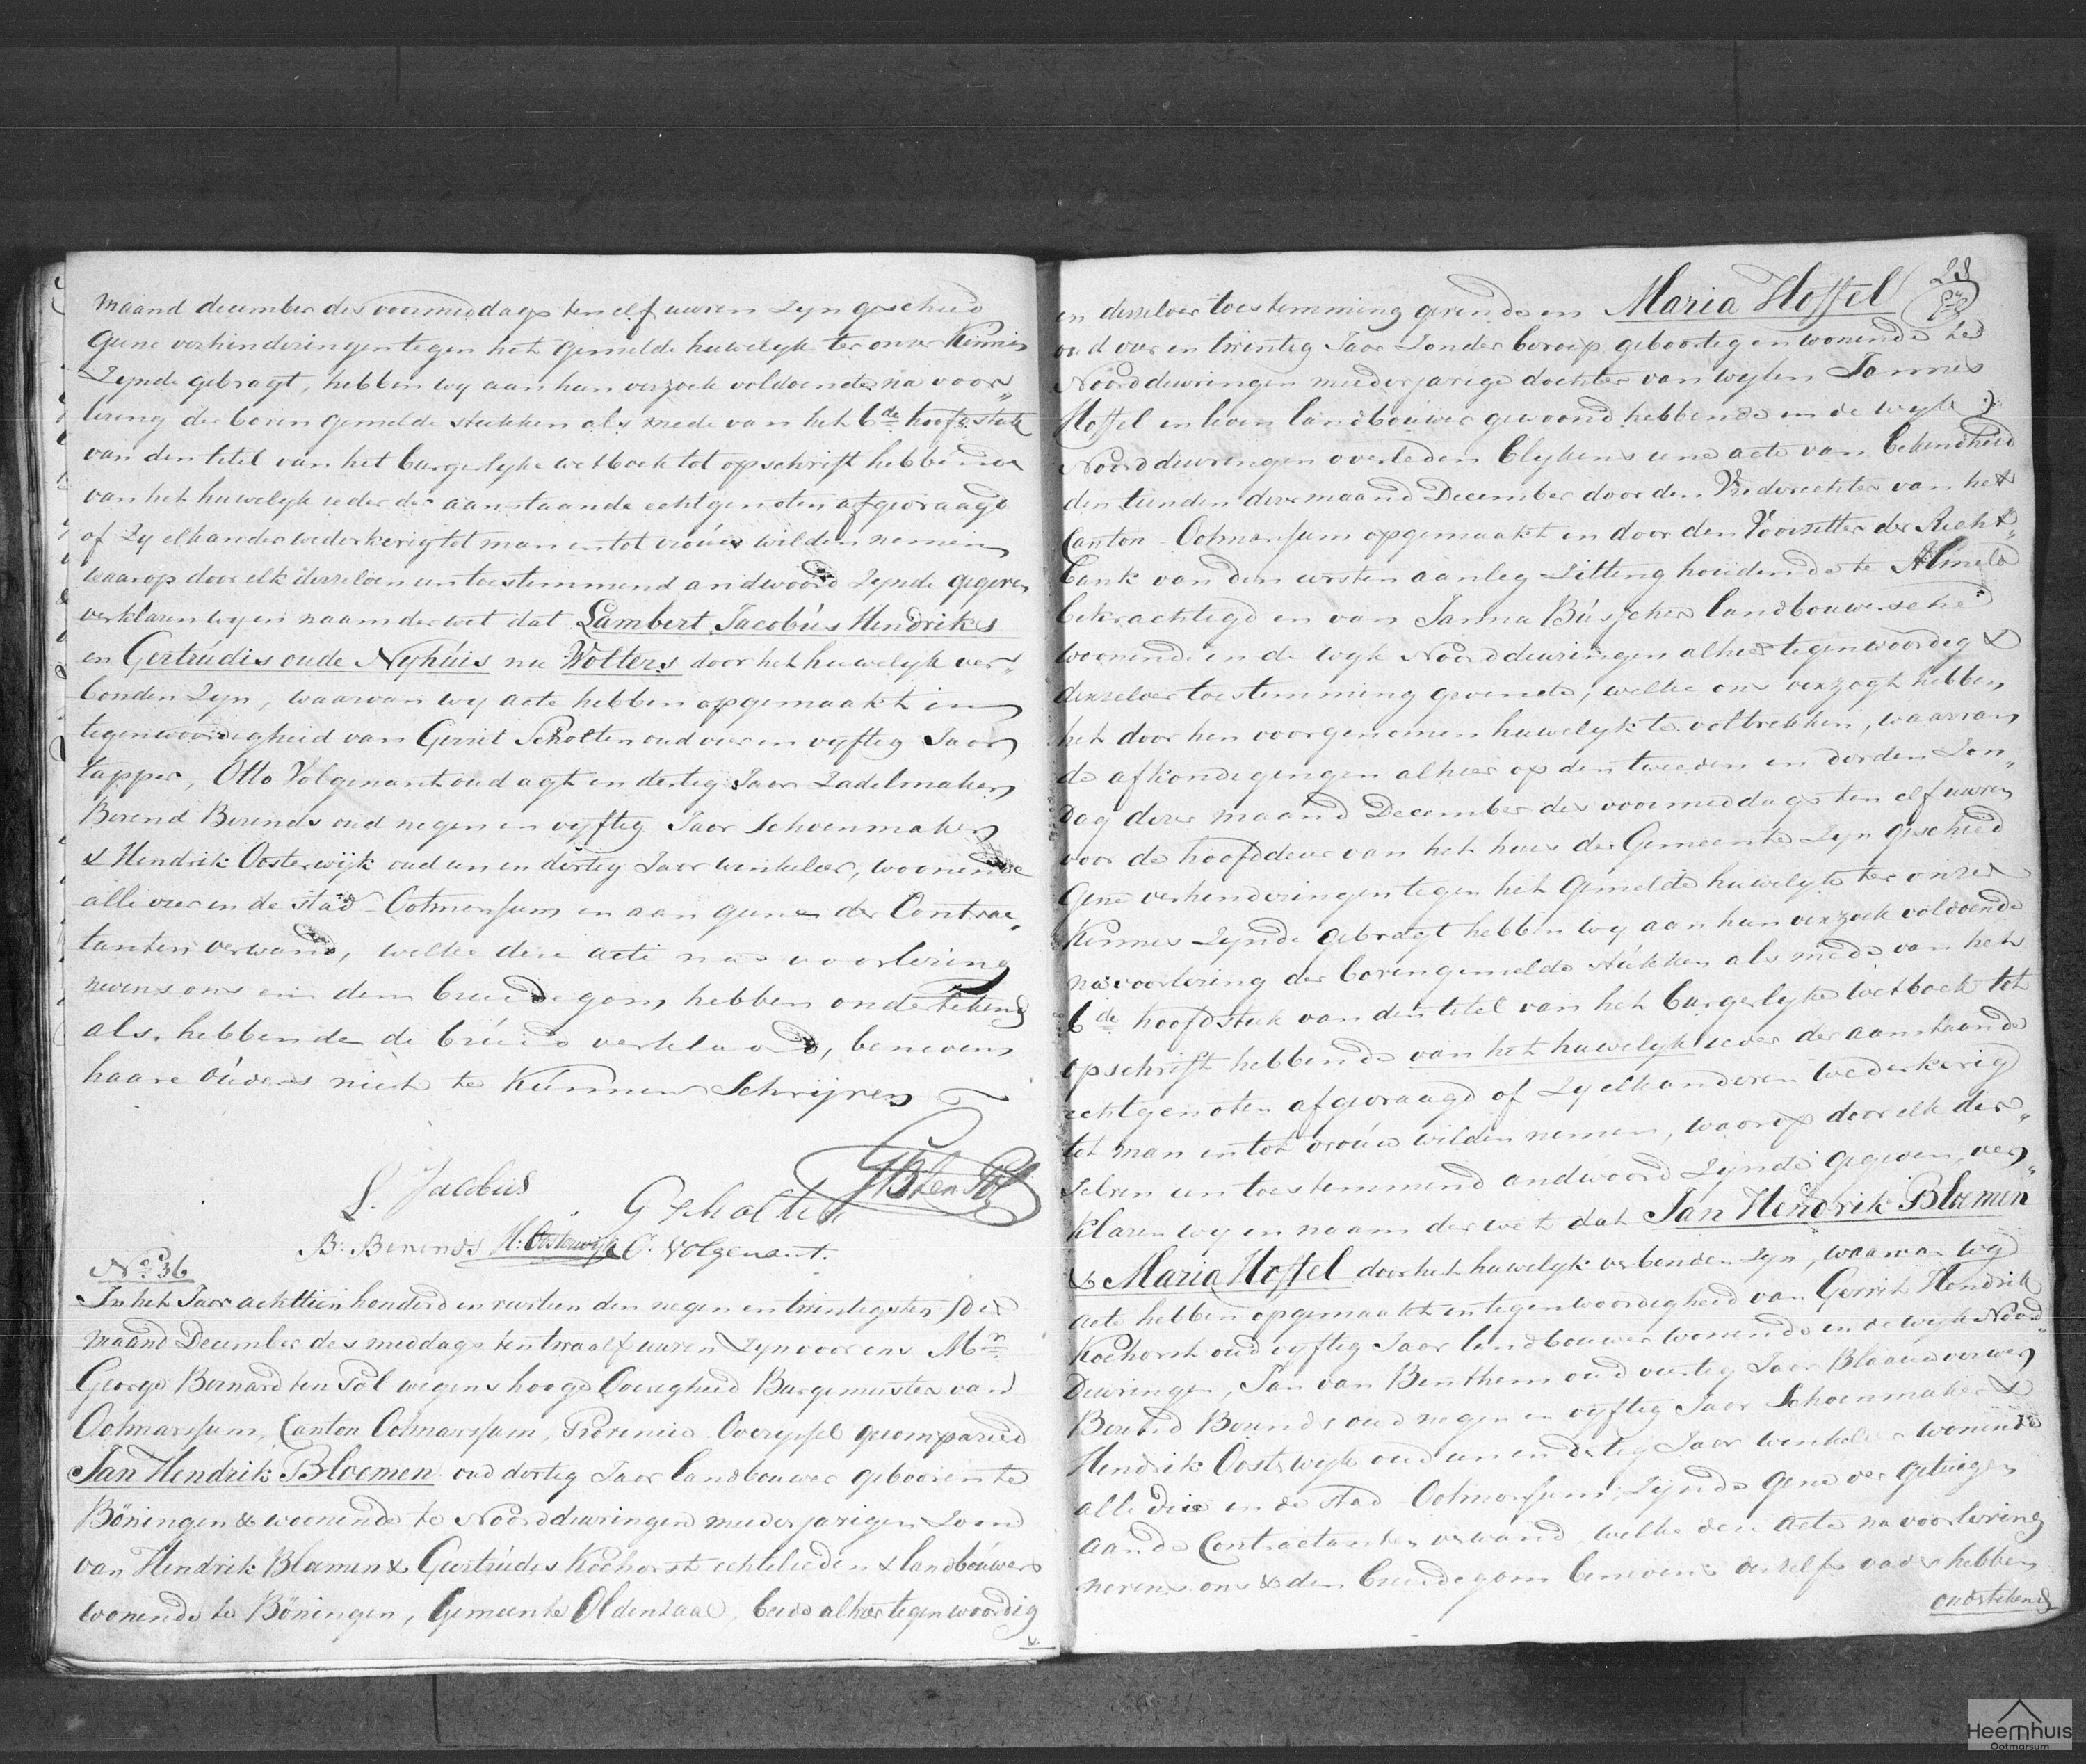 maand december des voormeddags ten elf uuren Zyn geschied
Gene verhinderingen tegen het Gemelde huwelyk ter onzer Kennis
Zynde gebragt, hebben wy aan hun verzoek voldoende na voor„
lezing der boven gemelde stukken als mede van het 6de hoofdstuk
van den titel van het burgerlyke wetboek tot opschrift hebbende
van het huwelyk ieder der aanstaande echtgenoten afgevraagd
of Zy elkander wederkerig tot man en tot vrouw wilden nemen
waarop door elk derzelven een toestemmend andwoord Zynde gegeven
verklaren wy in naam der wet dat Lambert Jacobús Hendriks
en Gertrúdis oude Nyhúis nu Wolters door het huwelyk ver„
bonden Zyn, waarvan wy acte hebben opgemaakt in
tegenwoordigheid van Gerrit Scholten oud vier en vyftig Jaar
tapper, Otto Volgenant oud agt en dertig Jaar Zadelmaker
Berend Berends oud negen en vyftig Jaar Schoenmaker
& Hendrik Oosterwijk oud een en dertig Jaar winkelier, woonende
alle vier in de stad Ootmarsum en aan gene der Contrac„
tanten verwand, welke deze acte na voorlezing
nevens ons en den bruidegom hebben ondertekend
als hebbende de brúid verklaard, benevens
haare oúders niet te Kúnnen Schrijven
GB ten Pol
L. Jacobus G Scholten
B: Berends H: Oosterwijk O. Volgenant.
No 36
In het Jaar achttien honderd en veertien den negen en twintigsten der
maand December des meddags ten twaalf uuren Zyn voor ons Mr
George Bernard ten Pol wegens hooge Overigheid Burgemeester van
Ootmarssum, Canton Ootmarssum, Provincie Overyssel gecompareerd
Jan Hendrik Bloemen oud dertig Jaar landbouwer gebooren te
Böningen & woonende te Noorddeuringen meederjarigen Zoon
van Hendrik Bloemen & Geertrúdis Koehorst echtelieden & landboúwers
wonende te Böningen, Gemeente Oldenzaal, beide alhier tegenwoordig
&
28
en derzelver toestemming gevende en Maria Hoffel
oud vier en twintig Jaar Zonder beroep geboortig en wonende te
Noorddeuringen meederjarige dochter van wylen Jannes
Hoffel in leven landboúwer gewoond hebbende in de wyk
Noorddeuringen overleden blykens eene acte van bekendheid
den tienden dezer maand December door den Vrederechter van het
Canton Ootmarssum opgemaakt en door den Voorzitter der Recht„
bank van den eersten aanleg Zitting houdende te Almelo
bekrachtigd en van Janna Búscher landbouwersche
woonende in de wyk Noorddeuringen alhier tegenwoordig &
derzelver toestemming gevende, welke ons verzogt hebben
het door hen voorgenomen huwelyk te voltrekken, waarvan
de afkondigingen alhier op den tweeden en derden Zon„
dag dezer maand December des voormeddags ten elf uuren
voor de hoofddeur van het huis der Gemeente Zyn geschied
Gene verhinderingen tegen het Gemelde huwelyk ter onzer
Kennis Zynde gebragt hebben wy aan hun verzoek voldoende
na voorlezing der bovengemelde stúkken als mede van het
6de hoofdstuk van den titel van het burgerlyke wetboek tot
opschrift hebbende van het huwelyk ieder der aanstaande
echtgenoten afgevraagd of Zy elkanderen wederkerig
tot man en tot vroúw wilden nemen, waarop door elk der„
zelven een toestemmend andwoord Zynde gegeven, ver„
klaren wy in naam der wet dat Jan Hendrik Bloemen
& Maria Hoffel door het huwelyk verbonden Zyn, waarvan wy
acte hebben opgemaakt in tegenwoordigheid van Gerrit Hendrik
Koehorst oud vyftig Jaar landbouwer wonende in de wyk Noord„
Deuringen, Jan van Benthem oud veertig Jaar Blaauwverwer
Berend Berends oud negen en vyftig Jaar Schoenmaker &
Hendrik Oosterwyk oud een en dertig Jaar winkelier wonende
alle drie in de stad Ootmarssum, Zynde gene der getuigen
aan de Contractanten verwand, welke deze acte na voorlezing
nevens ons & den bruidegom benevens deszelfs vader hebben
ondertekend
Heemhuis
Ootmarsum